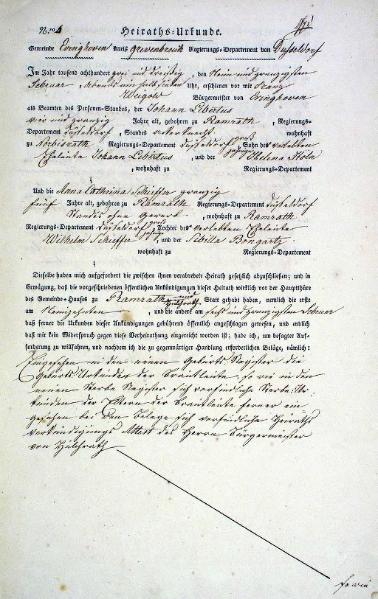 Heiraths-Urkunde.
Gemeinde Evinghoven Kreis Grevenbroich Regierungs-Departement von Düsseldorf
Im Jahr tausend achthundert zwei und dreißig, den Neun und zwanzigsten
Februar, Abends um halb Uhr, erschienen vor mir Franz
Weigold Bürgermeister von Evinghoven
als Beamten des Personen-Standes, der Johann Libertus
Jahre alt, gebohren zu Ramrath, Regierungs-
Departement Düsseldorf, Standes Ackerknecht, wohnhaft
zu Regierungs-Departement, Sohn des verlebten
Eheleute Johann Libertus, und der Helena
, wohnhaft zu Regierungs-Departement
Und die Anna Cathrina Scheiffer zwanzig
fünf Jahre alt, gebohren zu Ramrath Regierungs-Departement Düsseldorf
Standes ohne Gewerb, wohnhaft zu Ramrath
Regierungs-Departement Düsseldorf, Tochter des verlebten Eheleute
Wilhelm Scheiffer, und der Sibilla Bongartz
wohnhaft zu Regierungs-Departement
Dieselbe haben mich aufgefordert die zwischen ihnen verabredete Heirath gesetzlich abzuschließen; und in
Erwägung, daß die vorgeschriebenen öffentlichen Ankündigungen dieser Heirath wirklich vor der Hauptthüre
des Gemeinde-Hauses zu Ramrath und Statt gehabt haben, nemlich die erste
am Neunzehnten, und die andere am sechs und zwanzigsten Februar
daß ferner die Urkunden dieser Ankündigungen gebührend öffentlich angeschlagen gewesen, und endlich
daß mir kein Widerspruch gegen diese Verheirathung eingereicht worden ist; habe ich, um besagter Auf-
forderung zu willfahren, und nachdem ich die zu gegenwärtiger Handlung erforderlichen Beläge, nämlich:
Eingesehen in den Geburts Register die
Geburts Urkunden der Brautleute so wie in den
Sterbe Register sich vorfindliche Sterbe Ur-
kunden der Eltern der Brautleute ferner ein
gesehen bei den Belege sich vorfindliche Heiraths
verkündigungs Attest des Herrn Bürgermeister
von Hülchrath